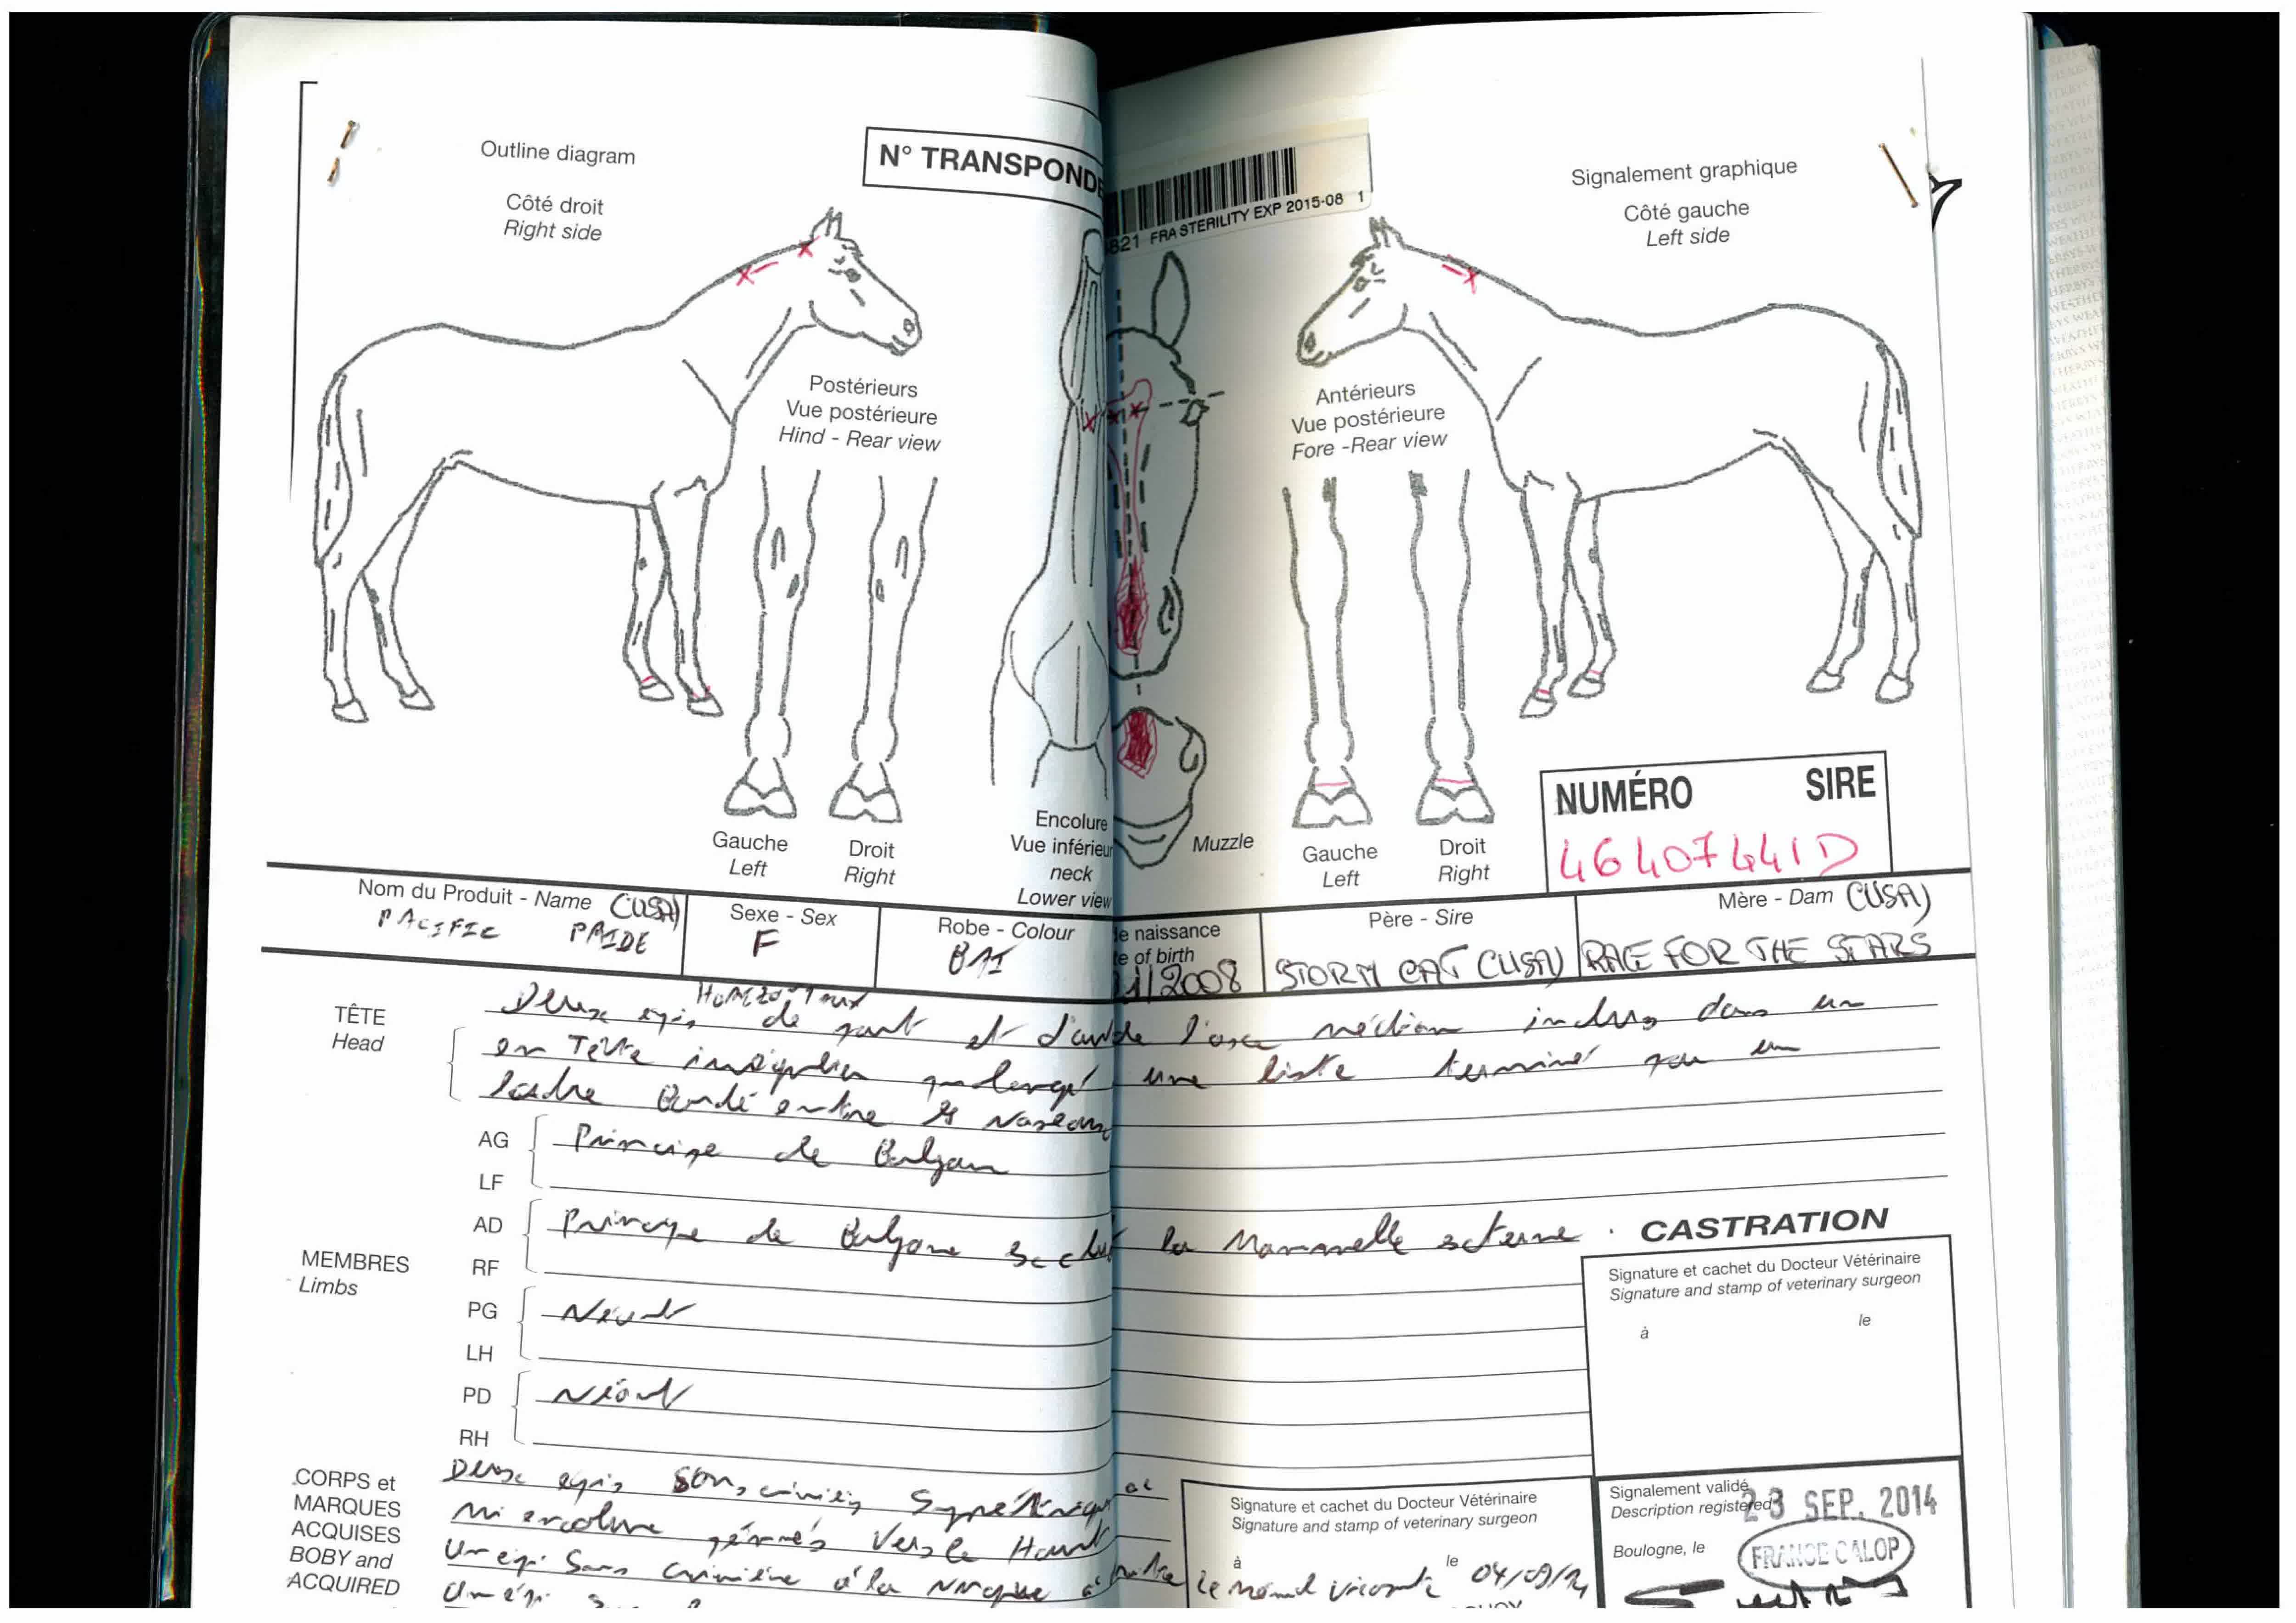 Outline diagram
Côté droit
Right side
N° TRANSPONDE
621 FRA STERILITY EXP 2015-08 1
Signalement graphique
Côté gauche
Left side
Postérieurs
Vue postérieure
Hind - Rear view
Antérieurs
Vue postérieure
Fore -Rear view
Gauche
Left
Droit
Right
Encolure
Vue inférieur
neck
Lower view
Muzzle
Gauche
Left
Droit
Right
NUMÉRO SIRE
46407441D
Nom du Produit - Name (USA)
PACIFIC PRIDE
Sexe - Sex
F
Robe - Colour
BAI
e naissance
te of birth
1/2008
Père - Sire
STORM CAT (USA)
Mère - Dam (USA)
RACE FOR THE STARS
TÊTE
Head
Horizontaux
Deux epis de part et d'autre l'axe médian inclus dans un
en Tête irrégulier prolongé une liste terminé par un
ladre Bordé entre les Naseaux
AG
LF
Principe de Balzane
AD
RF
Principe de Balzane la Mammelle externe.
MEMBRES
Limbs
PG
LH
Néant
PD
RH
Néant
CASTRATION
Signature et cachet du Docteur Vétérinaire
Signature and stamp of veterinary surgeon
à le
CORPS et
MARQUES
ACQUISES
BOBY and
ACQUIRED
Deux epis
Mi encolure pennés Vers le Haut
Un epi Sans crinière à la Nuque
Un épi
Signature et cachet du Docteur Vétérinaire
Signature and stamp of veterinary surgeon
à le
Le Mesnil Vicomte 04/09/14
Signalement validé
Description registered
23 SEP. 2014
Boulogne, le
FRANCE GALOP